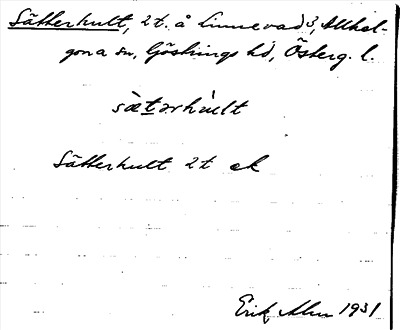 Sätterhult, 2 t. å Linnevad 3, Allhel-
gona sn, Göstrings hd, Österg. l.
sætərhult
Sätterhult 2 t ek
Erik Alm 1931